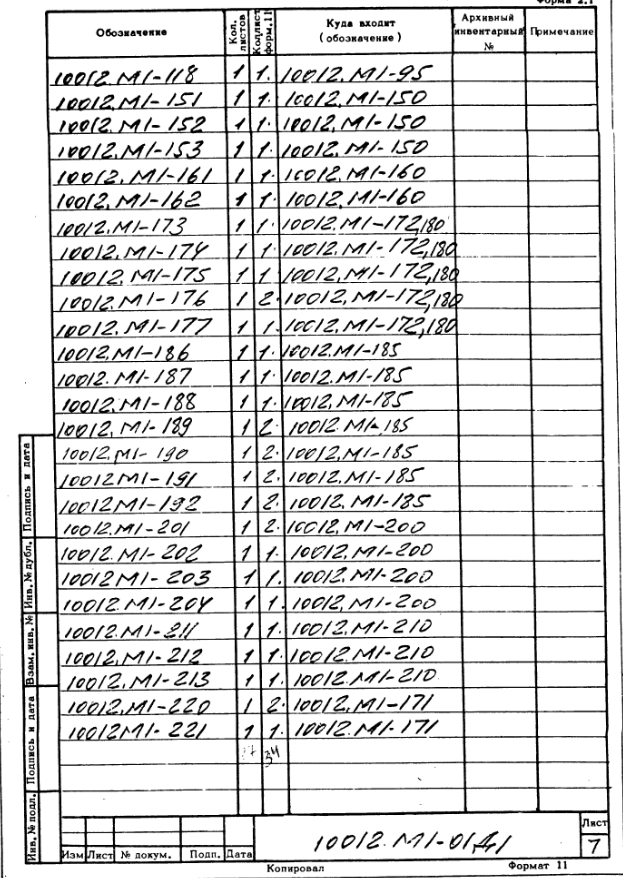 Форма 2.1
Обозначение Кол. листов Кол. лист форм. 11 Куда входит (обозначение) Архивный инвентарный № Примечание
10012.М1-118 1 1. 10012.М1-95
10012.М1-151 1 1. 10012.М1-150
10012.М1-152 1 1. 10012.М1-150
10012.М1-153 1 1. 10012.М1-150
10012.М1-161 1 1. 10012.М1-160
10012.М1-162 1 1. 10012.М1-160
10012.М1-173 1 1. 10012.М1-172,180
10012.М1-174 1 1. 10012.М1-172,180
10012.М1-175 1 1. 10012.М1-172,180
10012.М1-176 1 2. 10012.М1-172,180
10012.М1-177 1 1. 10012.М1-172,180
10012.М1-186 1 1. 10012.М1-185
10012.М1-187 1 1. 10012.М1-185
10012.М1-188 1 1. 10012.М1-185
10012.М1-189 1 2. 10012.М1-185
10012.М1-190 1 2. 10012.М1-185
10012М1-191 1 2. 10012.М1-185
10012М1-192 1 2. 10012.М1-185
10012.М1-201 1 2. 10012.М1-200
10012.М1-202 1 1. 10012.М1-200
10012М1-203 1 1. 10012.М1-200
10012.М1-204 1 1. 10012.М1-200
10012.М1-211 1 1. 10012.М1-210
10012.М1-212 1 1. 10012.М1-210
10012.М1-213 1 1. 10012.М1-210
10012.М1-220 1 2. 10012.М1-171
10012М1-221 1 1. 10012.М1-171
34
Подпись и дата
Инв. № дубл.
Взам. инв. №
Подпись и дата
Инв. № подл.
10012.М1-01Д1
Лист
7
Изм Лист № докум. Подп. Дата
Копировал Формат 11